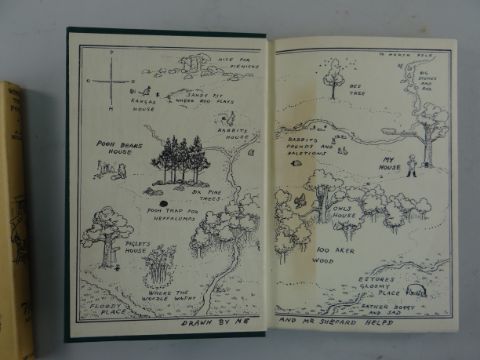 P
H
NICE FOR
PIKNICKS
SANDY PIT
WHERE ROO PLAYS
KANGAS
HOUSE
RABBITS
HOUSE
POOH BEARS
HOUSE
SIX PINE
TREES
POOH TRAP FOR
HEFFALUMPS
PIGLETS
HOUSE
WHERE THE
WOOZLE WASNT
FLOODY
PLACE
DRAWN BY ME
TO NORTH POLE
BIG
STONES
AND
ROX
BEE
TREE
RABBITS
FRENDS AND
RALETIONS
MY
HOUSE
OWLS
HOUSE
100 AKER
WOOD
EEYORES
GLOOMY
PLACE
RATHER BOGGY
AND SAD
AND MR SHEPARD HELPD